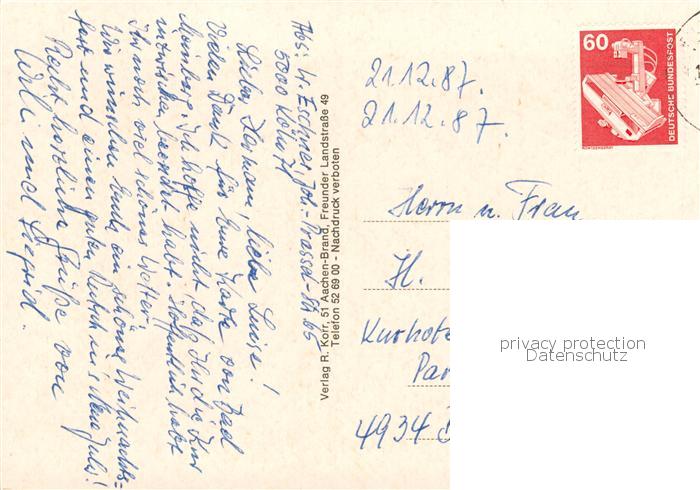 Abs: W. Eschner, Joh.-Prassel-Str. 65
5000 Köln 71
Lieber Hermann! Liebe Luise!
Vielen Dank für Eure Karte von Bad
Meinberg. Ich hoffe nicht, daß Ihr die Kur
inzwischen beendet habt. Hoffentlich habt
Ihr noch viel schönes Wetter.
Wir wünschen Euch ein schönes Weihnachts-
fest und einen guten Rutsch ins Neue Jahr!
Recht herzliche Grüße von
Willi und
Verlag R. Korr, 51 Aachen-Brand, Freunder Landstraße 49
Telefon 52 69 00 - Nachdruck verboten
60
DEUTSCHE BUNDESPOST
RÖNTGENGERÄT
21.12.87.
21.12.87.
Herrn u. Frau
H.
Kurhote
Par
4934
privacy protection
Datenschutz